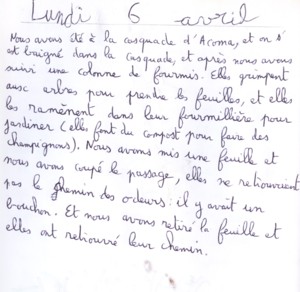 Lundi 6 avril
Nous avons été à la casquade d'Acoma, et on s'
est baigné dans la casquade, et après nous avons
suivi une colonne de fourmis. Elles grimpent
aux arbres pour prendre les feuilles, et elles
les ramènent dans leur fourmillière pour
jardiner (elles font du compost pour faire des
champignons). Nous avons mis une feuille et
nous avons coupé le passage, elles ne retrouvaient
pas le chemin des odeurs : il y avait un
bouchon. Et nous avons retiré la feuille et
elles ont retrouvé leur chemin.